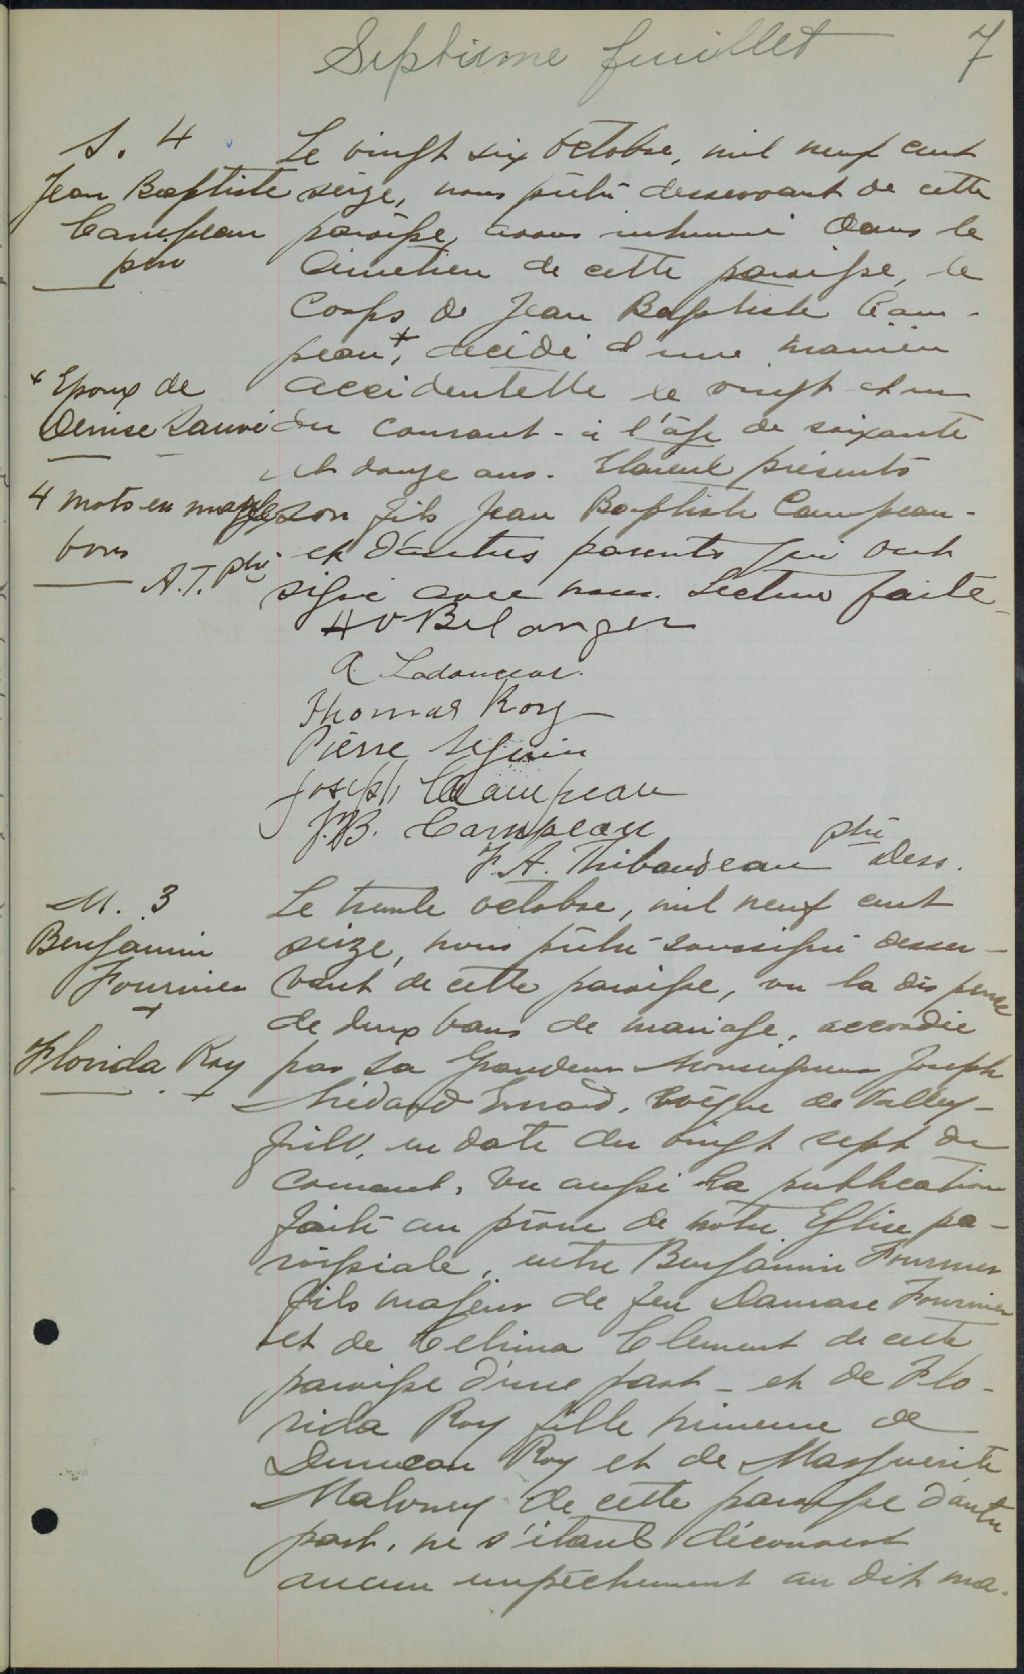 Septième feuillet 7
S. 4
Jean Baptiste
Campeau
père
Le vingt six octobre, mil neuf cent
seize, nous prêtre desservant de cette
paroisse, avons inhumé dans le
cimetière de cette paroisse, le
corps de Jean Baptiste Cam-
peau +, décédé d'une manière
accidentelle le vingt et un
du courant - à l'âge de soixante
et douze ans. Etaient présents
son fils Jean Baptiste Campeau -
et d'autres parents qui ont
signé avec nous. Lecture faite -
+ Epoux de
Denise Sauvé
4 mots en marge
bons
A.T. ptre
Belanger
A. Ladouceur.
Thomas Roy
Pierre Seguin
Joseph Campeau
J.B. Campeau
F. A. Thibaudeau ptre Dess.
M. 3
Benjamin
Fournier
+
Florida Roy
Le trente octobre, mil neuf cent
seize, nous prêtre soussigné desser-
vant de cette paroisse, vu la dispense
de deux bans de mariage, accordée
par Sa Grandeur Monseigneur Joseph
Médard Emard, évêque de Valley-
field, en date du vingt sept du
courant, vu aussi la publication
faite au prône de notre Eglise pa-
roissiale, entre Benjamin Fournier
fils majeur de feu Damase Fournier
et de Celina Clement de cette
paroisse d'une part - et de Flo-
rida Roy fille mineure de
Duncan Roy et de Marguerite
Maloney de cette paroisse d'autre
part, ne s'étant découvert
aucun empêchement au dit ma-